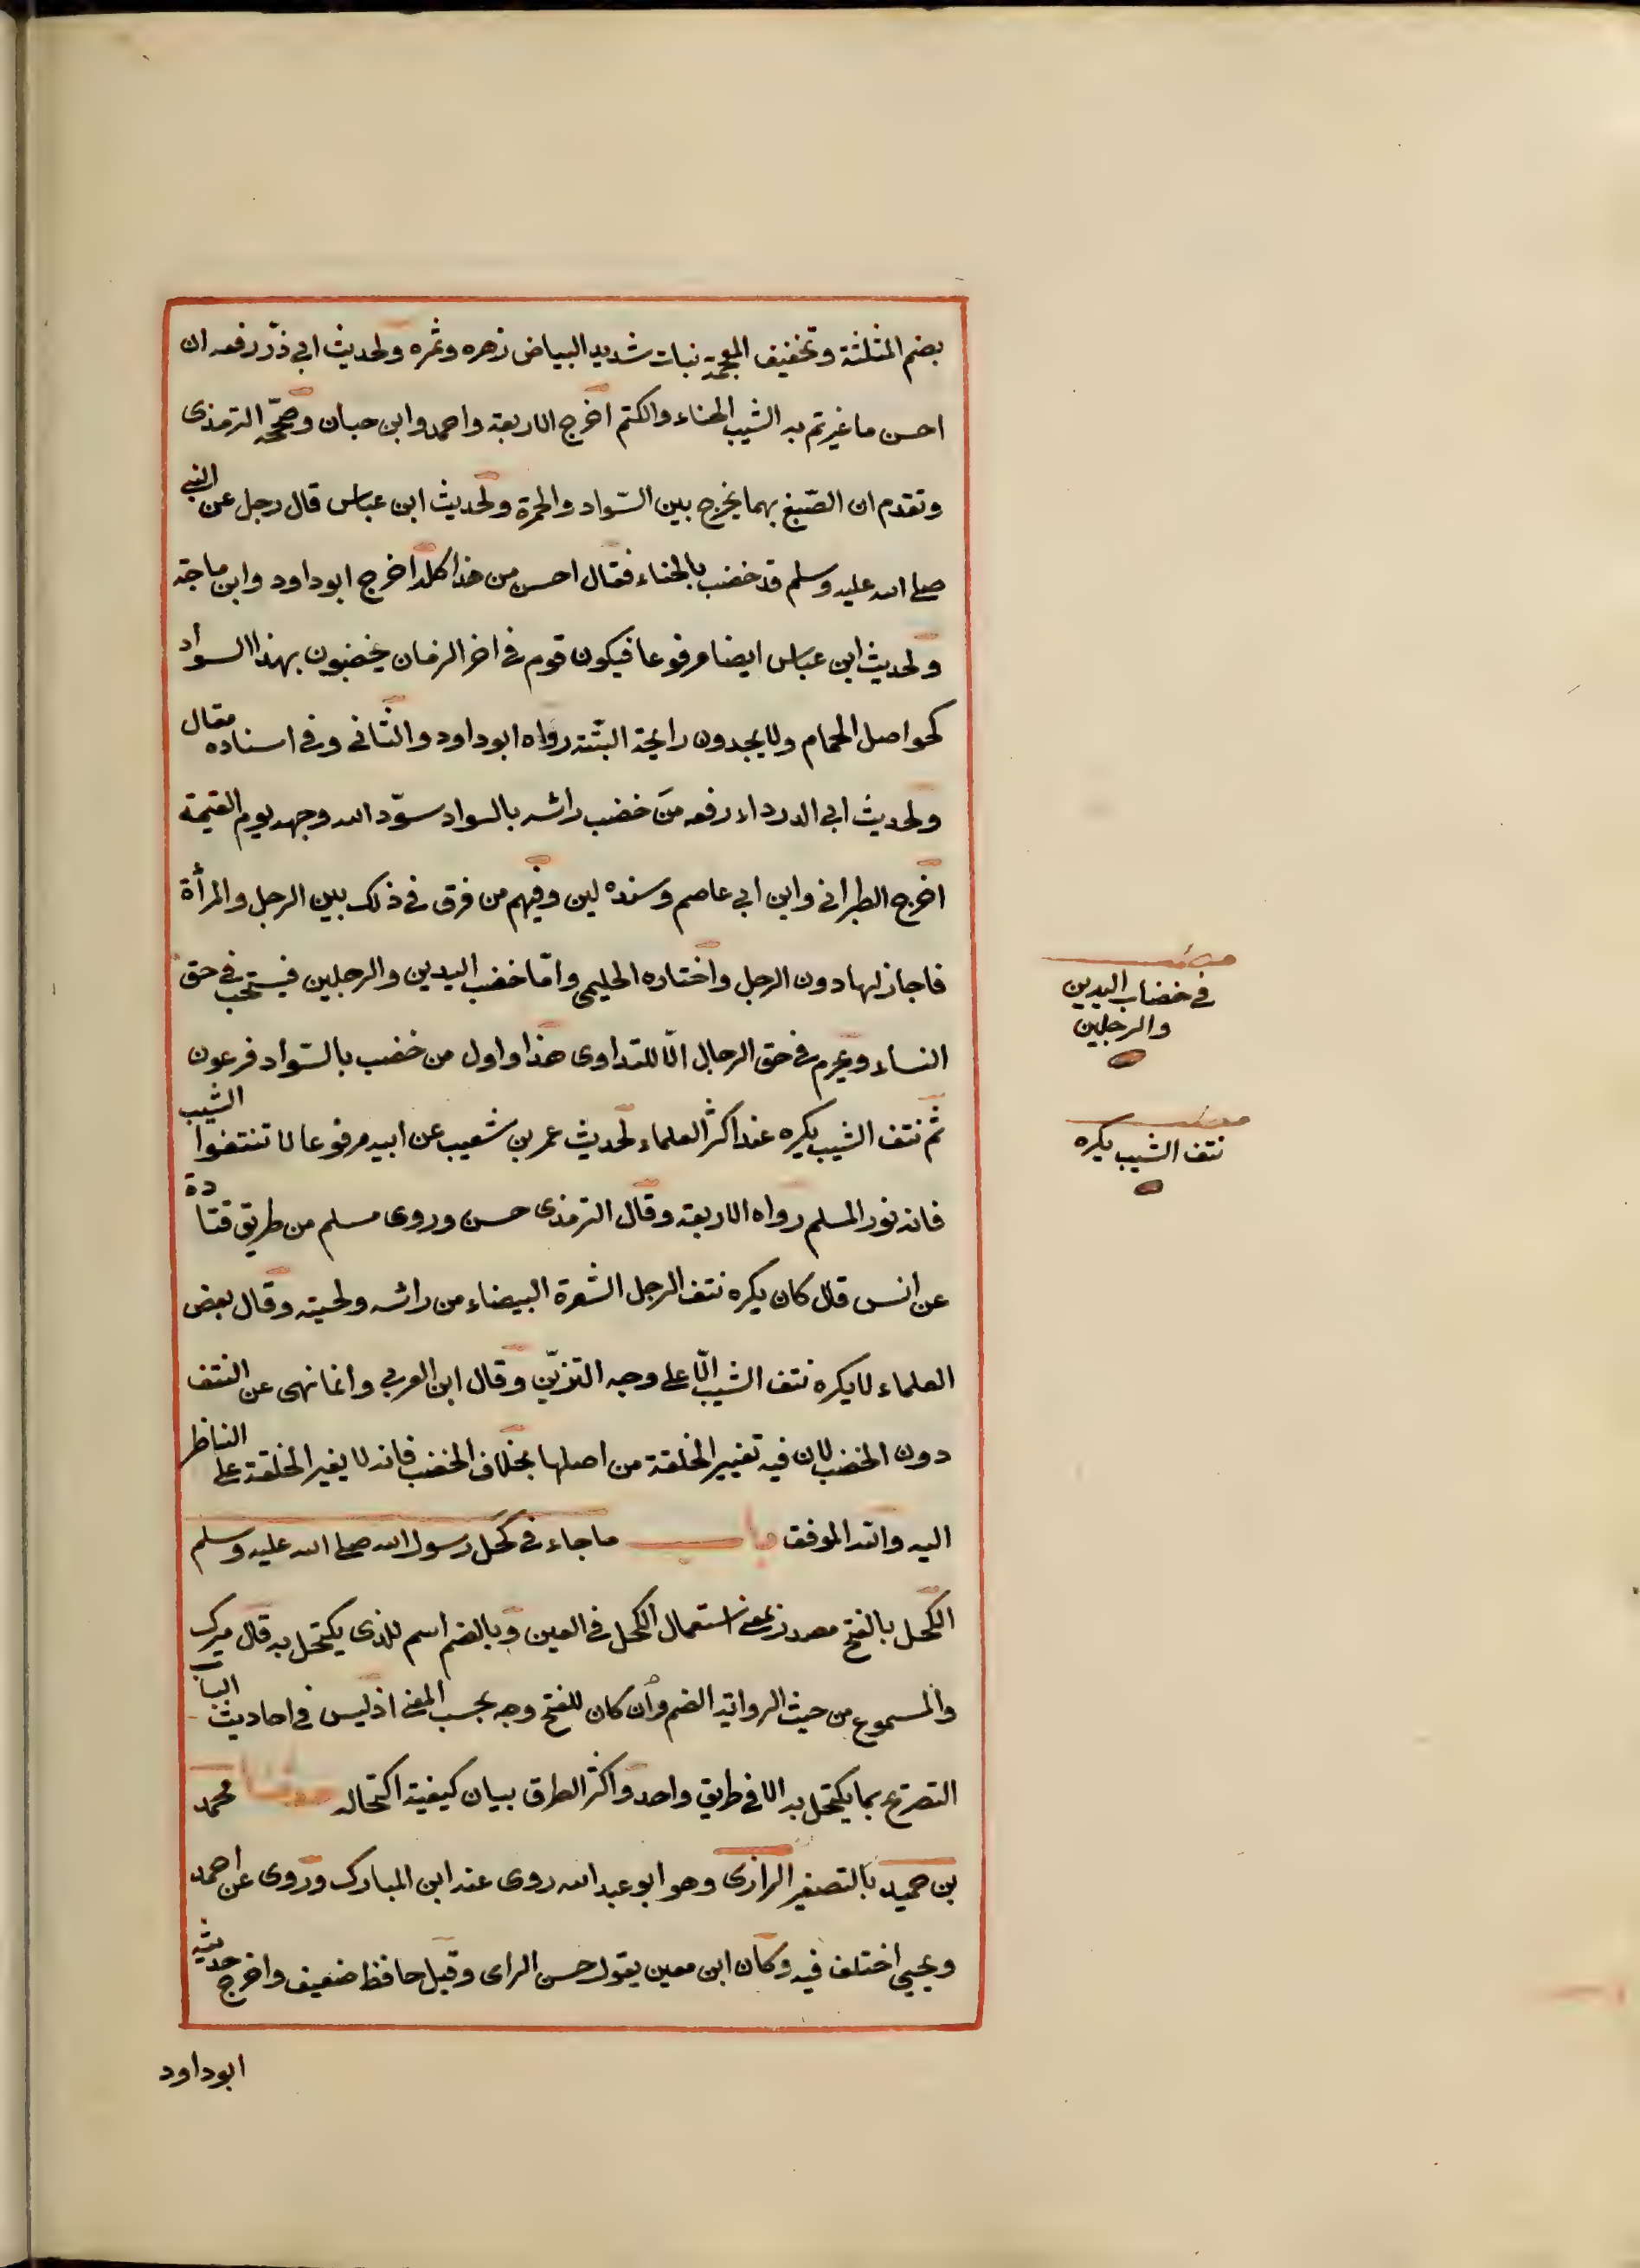 بضم المثلثة وتخفيف المعجمة نبات شديد البياض زهره وثمره ولحديث ابي ذرّ رفعه ان
احسن ما غيرتم به الشيب الحناء والكتم اخرج الاربعة واحمد وابن حبان وصحّحه الترمذى
وتقدم ان الصّبغ بهما يخرج بين السّواد والحمرة ولحديث ابن عباس قال رجل عن النبى
صلى الله عليه وسلم قد خضب بالحناء فقال احسن من هذا كله اخرج ابو داود وابن ماجة
ولحديث ابن عباس ايضا مرفوعا فيكون قوم فى اخر الزمان يخضبون بهذا السواد
كحواصل الحمام ولا يجدون رايحة البتّة رواه ابو داود والنسانى وفى اسناده مقال
ولحديث ابى الدرداء رفعه مَن خضب رائسه بالسواد سوّد الله وجهه يوم القيمة
اخرج الطبرانى وابن ابى عاصم وسنده لين وفيهم من فرق فى ذلك بين الرجل والمرأة
فاجاز لها دون الرجل واختاره الحليمى وامّا خضب اليدين والرجلين فيستحب فى حق
النساء ويحرم فى حق الرجال الّا للتداوى هذا واول من خضب بالسّواد فرعون
ثم نتف الشيب يكره عند اكثر العلماء لحديث عمر بن شعيب عن ابيه مرفوعا لا تنتفوا الشيب
فانه نور المسلم رواه الاربعة وقال الترمذى حسن وروى مسلم من طريق قتادة
عن انس قال كان يكره نتف الرجل الشعرة البيضاء من رائسه ولحيته وقال بعض
العلماء لا يكره نتف الشيب الّا على وجه التزيّن وقال ابن العربى وانما نهى عن النتف
دون الخضب لان فيه تغيير الخلقة من اصلها بخلاف الخضب فانه لا يغير الخلقة على الناظر
اليه والله الموفق باب ما جاء فى كحل رسول الله صلى الله عليه وسلم
الكحل بالفتح مصدر بمعنى استعمال الكحل فى العين وبالضم اسم للذى يكتحل به قال ميرك
والمسموع من حيث الرواية الضم وان كان للفتح وجه بحسب المعنى اذ ليس فى احاديث الباب
التصريح بما يكتحل به الا فى طريق واحد واكثر الطرق بيان كيفية اكتحاله حدثنا محمد
بن حميد بالتصغير الرازى وهو ابو عبد الله روى عنه ابن المبارك وروى عن احمد
ويحيى اختلف فيه وكان ابن معين يقول حسن الراى وقيل حافظ ضعيف واخرج حديثه
ابو داود
مطلب
فى خضاب اليدين
والرجلين
مطلب
نتف الشيب يكره